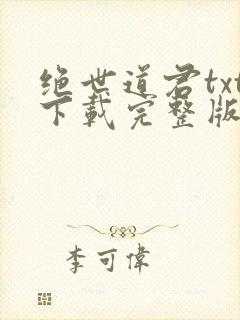 绝世道君txt
下载完整版
李可偉